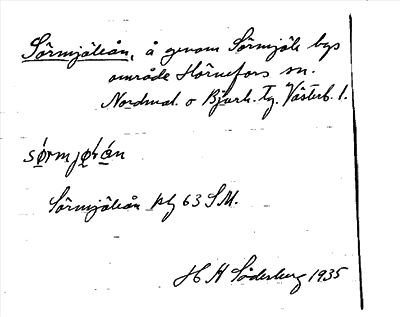 Sörmjöleån, å genom Sörmjöle bys
område Hörnefors sn.
Nordmal. o Bjurh. tg. Västerb. l.
sǿrmjøɫån
Sörmjöleån bl 63 S.M.
H H Söderberg 1935